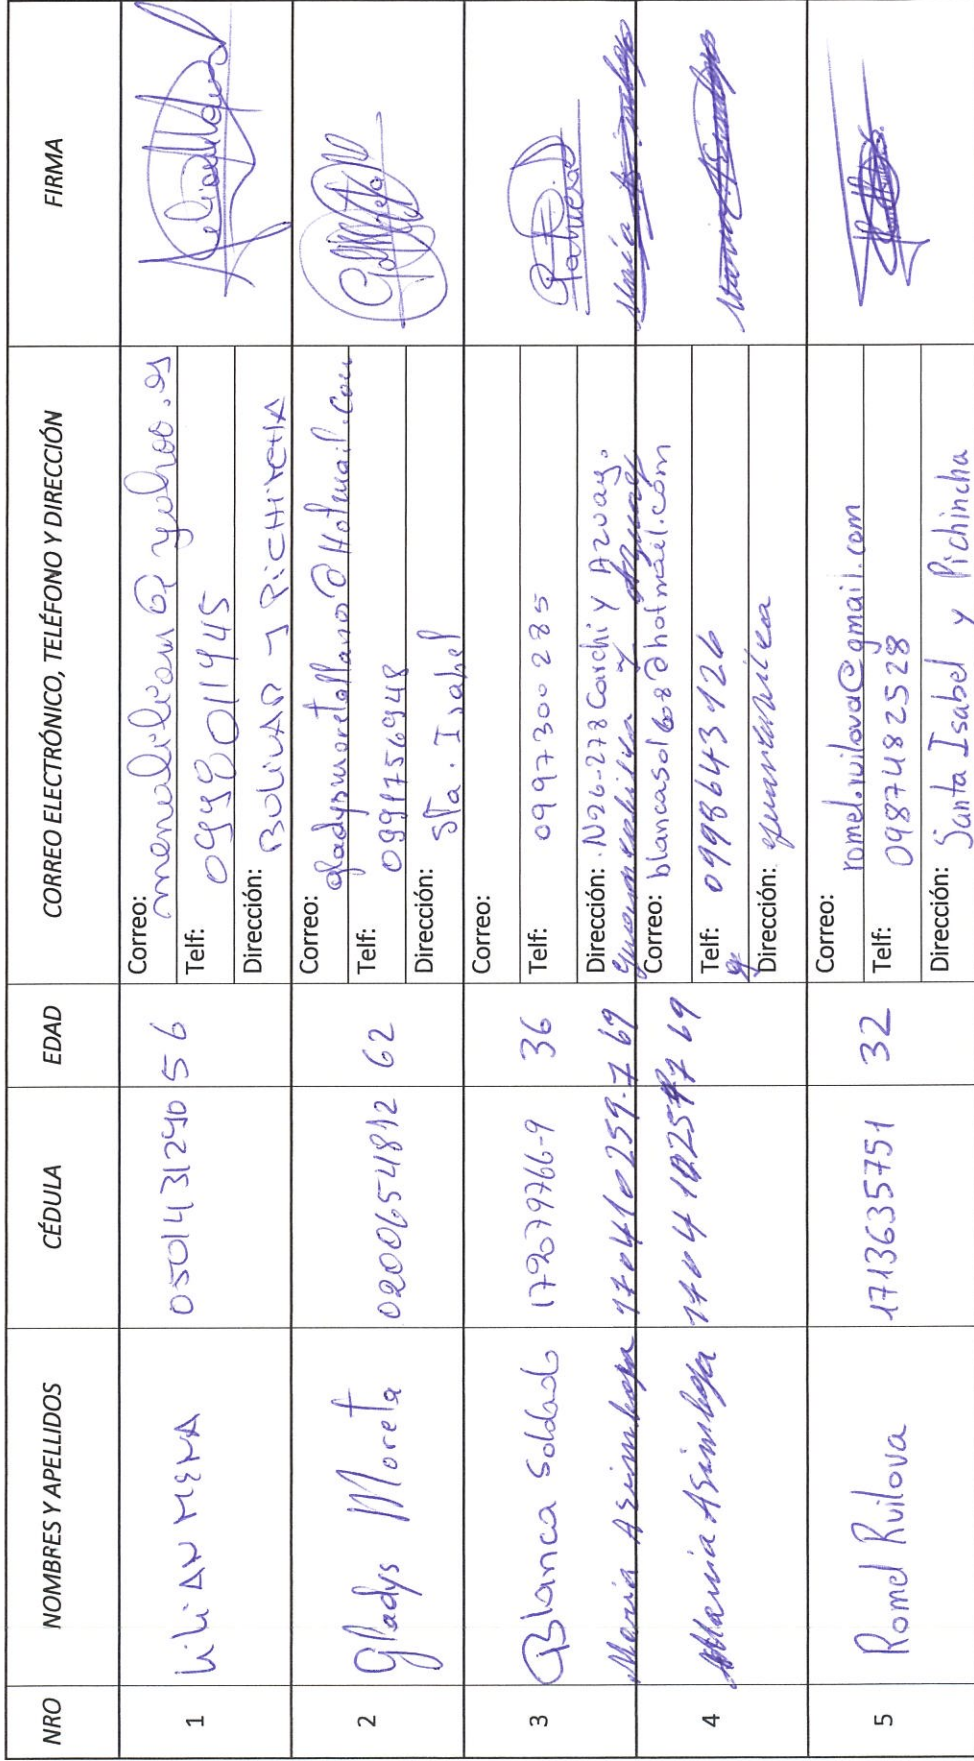 NRO NOMBRES Y APELLIDOS CÉDULA EDAD CORREO ELECTRÓNICO, TELÉFONO Y DIRECCIÓN FIRMA
1 LiLiAN MENA 0501431290 56
Correo:
Telf: 0998011945
Dirección: BOLIVAR Y PICHINCHA
2 Gladys Moreta 0200654812 62
Correo: gladysmoretallano@Hotmail.com
Telf: 0991756948
Dirección: Sta. Isabel
3 Blanca Soldado 172079766-9 36
Correo:
Telf: 0997300285
Dirección: N26-278 Carchi Y Azuay.
María Asimbaya 170410259-7 69
4 María Asimbaya 1704102597 69
Correo: blancasol608@hotmail.com
Telf: 0998643126
Dirección:
5 Romel Ruilova 1713635751 32
Correo: romel.ruilova@gmail.com
Telf: 0987482528
Dirección: Santa Isabel y Pichincha